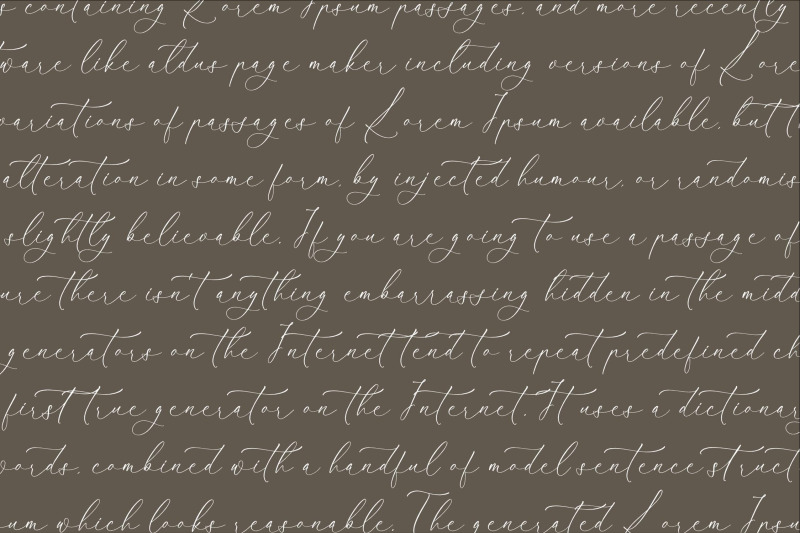 s containing Lorem Ipsum passages, and more recently
tware like aldus page maker including versions of Lore
variations of passages of Lorem Ipsum available, but t
alteration in some form, by injected humour, or randomis
slightly believable. If you are going to use a passage of
ure there isn't anything embarrassing hidden in the midd
generators on the Internet tend to repeat predefined ch
first true generator on the Internet. It uses a dictionary
words, combined with a handful of model sentence struct
um which looks reasonable. The generated Lorem Ipsu